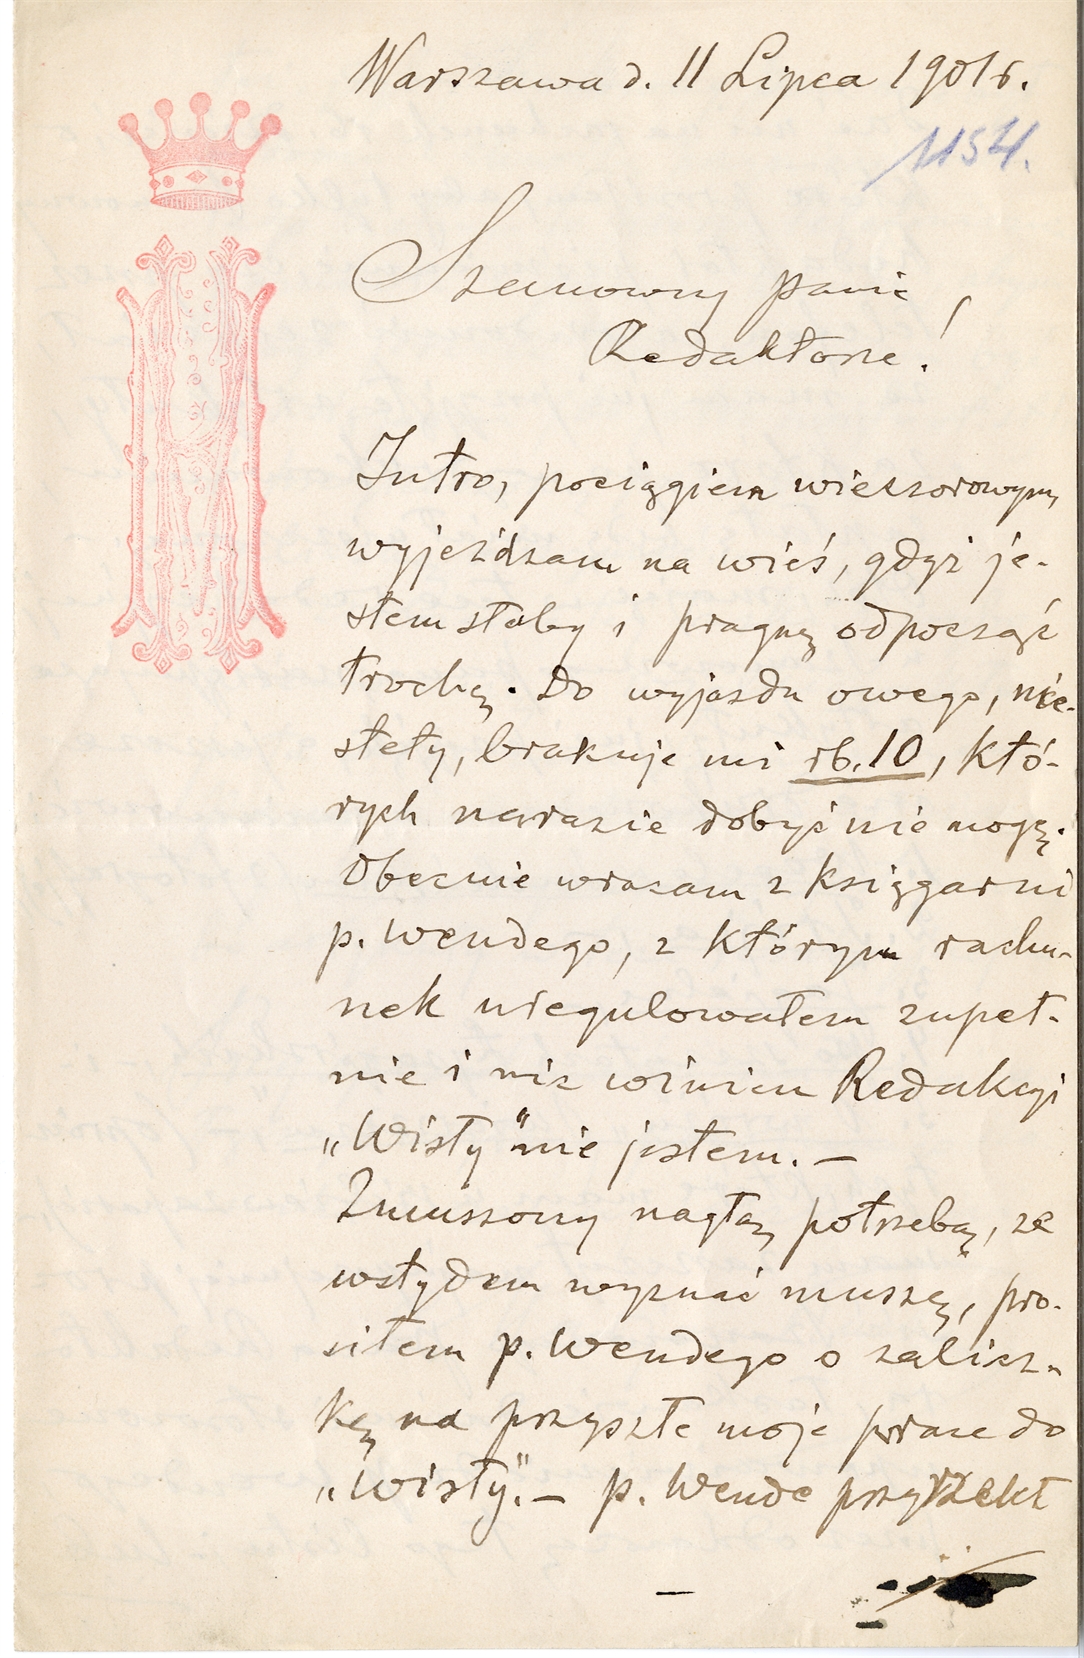 Warszawa d. 11 Lipca 1901 r.
1154.
Szanowny panie
Redaktorze!
Jutro, pociągiem wieczorowym,
wyjeżdżam na wieś, gdyż je-
stem słaby i pragnę odpocząć
trochę. Do wyjazdu owego, nie-
stety, brakuje mi rb. 10, któ-
rych narazie dobyć nie mogę.
Obecnie wracam z księgarni
p. Wendego, z którym rachu-
nek uregulowałem zupeł-
nie i nic winien Redakcyi
„Wisły" nie jestem. —
Zmuszony nagłą potrzebą, ze
wstydem wyznać muszę, pro-
siłem p. Wendego o zalicz-
kę na przyszłe moje prace do
„Wisły". — p. Wende przyrzekł